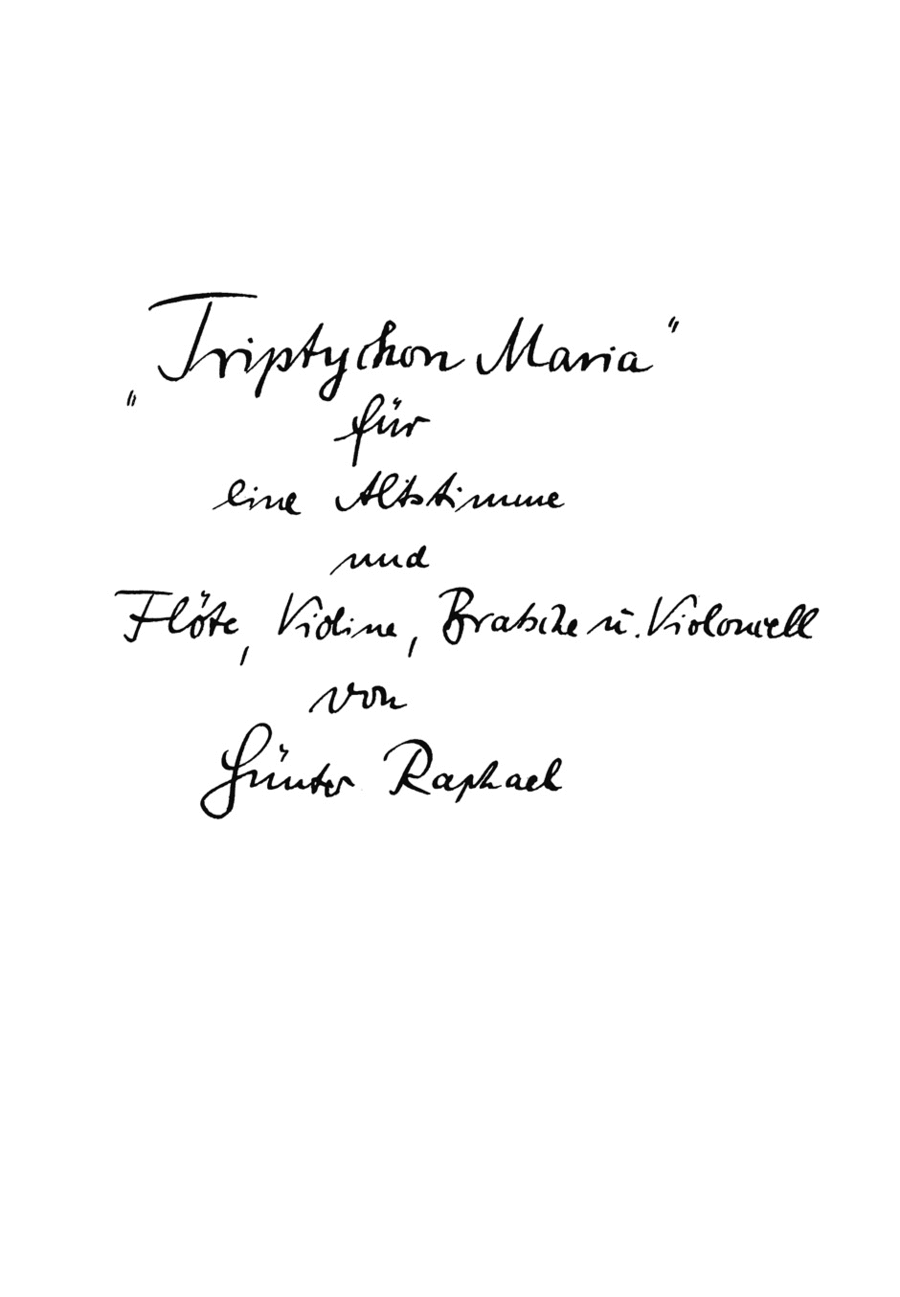 „Triptychon Maria“
für
eine Altstimme
und
Flöte, Violine, Bratsche u. Violoncell
von
Günter Raphael